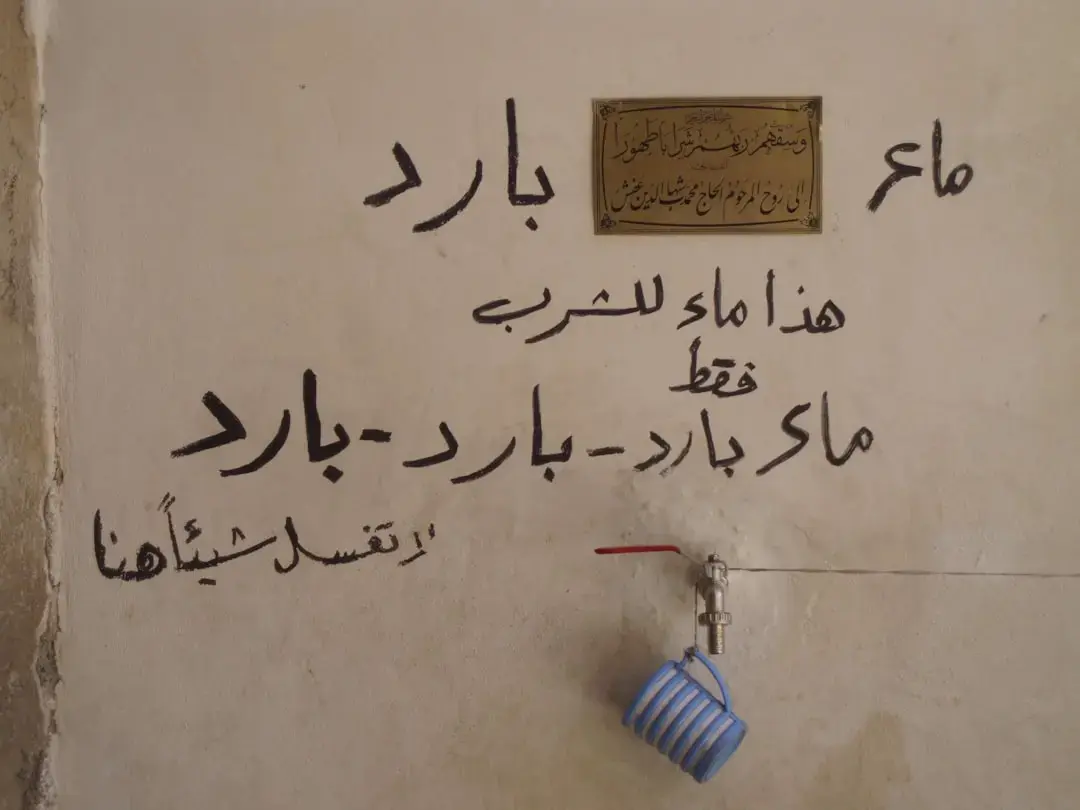 ماء بارد
وسقهم ربهم شرابا طهورا
إلى روح المرحوم الحاج محمد شهاب الدين عنش
هذا ماء للشرب
فقط
ماء بارد - بارد - بارد
لا تغسل شيئاً هنا